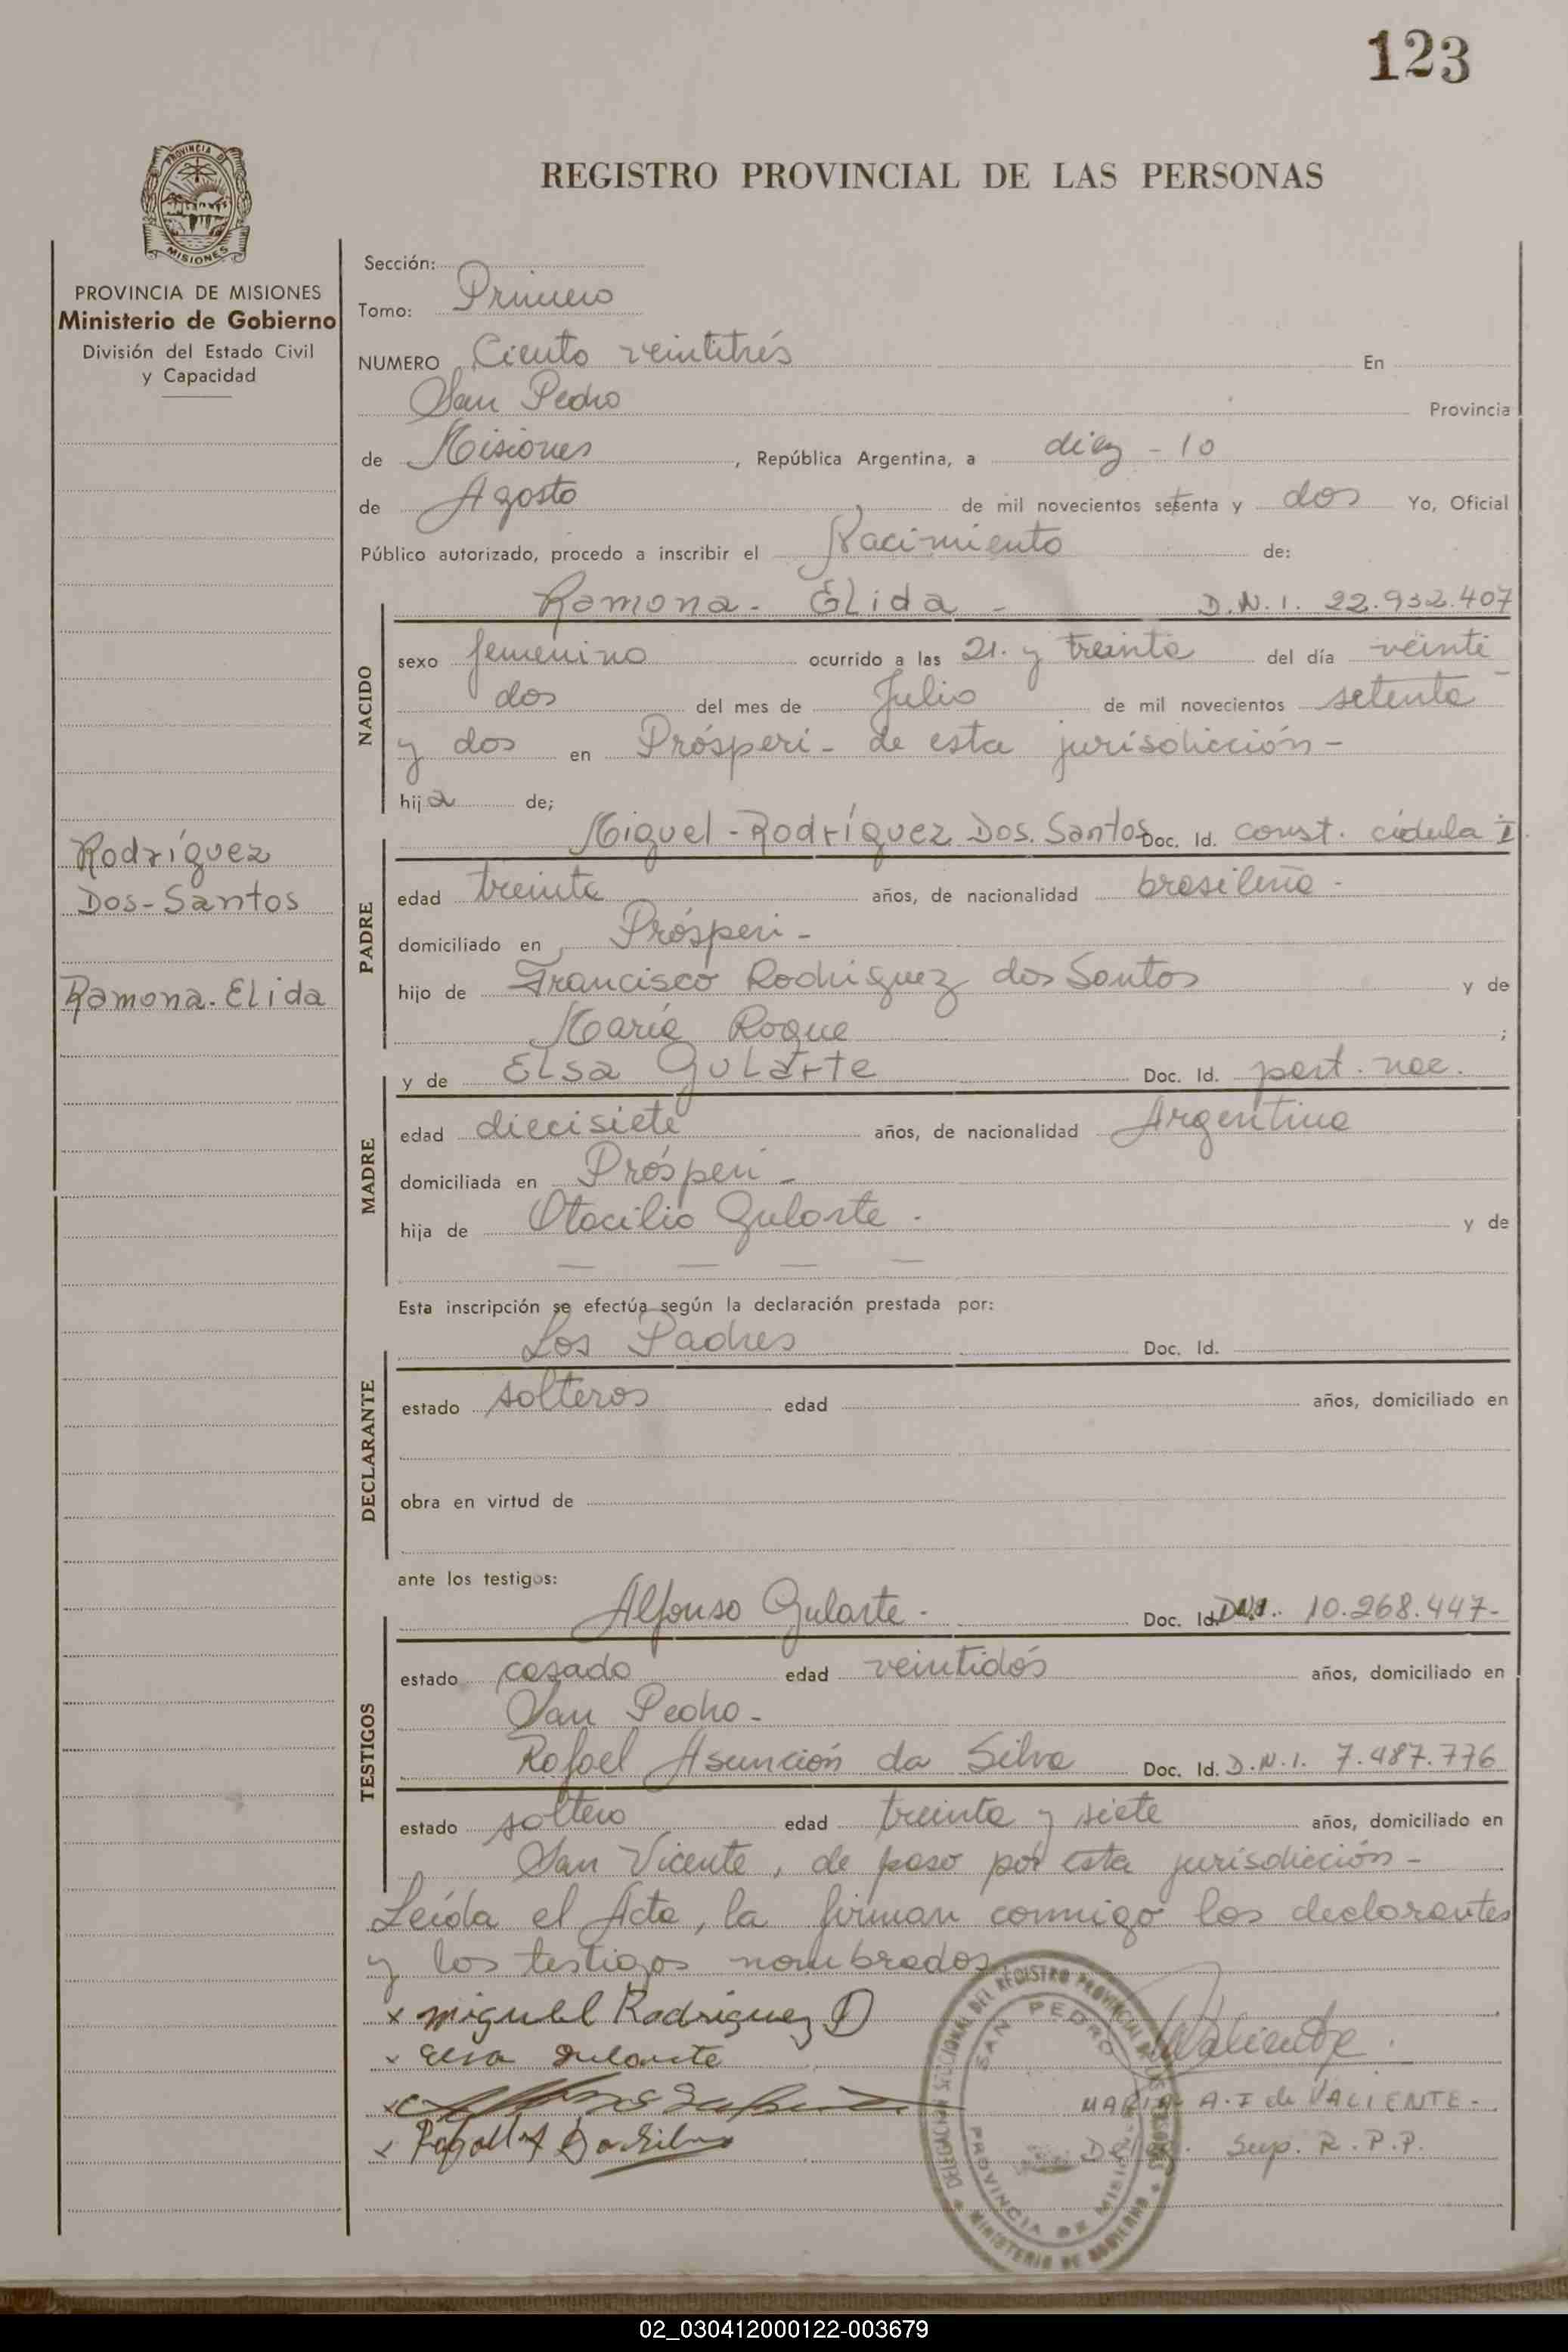 123
PROVINCIA DE
MISIONES
REGISTRO PROVINCIAL DE LAS PERSONAS
PROVINCIA DE MISIONES
Ministerio de Gobierno
División del Estado Civil
y Capacidad
Rodríguez
Dos-Santos
Ramona-Elida
Sección:
Tomo: Primero
NUMERO Ciento veintitrés En
San Pedro Provincia
de Misiones, República Argentina, a diez - 10
de Agosto de mil novecientos setenta y dos Yo, Oficial
Público autorizado, procedo a inscribir el Nacimiento de:
NACIDO
Ramona - Elida - D.N.I. 22.932.407
sexo femenino ocurrido a las 21. y treinta del día veinti
dos del mes de Julio de mil novecientos setenta
y dos en Prósperi - de esta jurisdicción -
hija de;
PADRE
Miguel - Rodríguez Dos. Santos Doc. Id. const. cédula I.
edad treinta años, de nacionalidad brasileña -
domiciliado en Prósperi -
hijo de Francisco Rodriguez dos Santos y de
María Roque ;
MADRE
y de Elsa Gularte Doc. Id. part. nac.
edad diecisiete años, de nacionalidad Argentina
domiciliada en Prósperi -
hija de Otacilio Gularte - y de
— — — —
Esta inscripción se efectúa según la declaración prestada por:
DECLARANTE
Los Padres Doc. Id.
estado solteros edad años, domiciliado en
obra en virtud de
ante los testigos:
TESTIGOS
Alfonso Gularte - Doc. Id. D.N.I. 10.268.447-
estado casado edad veintidós años, domiciliado en
San Pedro -
Rafael Asunción da Silva Doc. Id. D.N.I. 7.487.776
estado soltero edad treinta y siete años, domiciliado en
San Vicente, de paso por esta jurisdicción -
Leída el Acta, la firman conmigo los declarantes
y los testigos nombrados
x miguel Rodriguez D
x Elsa Gularte
x
x
Valiente
MARIA A. F de VALIENTE -
Sup. R.P.P.
DELEGACION SECCIONAL DEL REGISTRO PROVINCIAL DE LAS PERSONAS
SAN PEDRO
PROVINCIA DE MISIONES
MINISTERIO DE GOBIERNO
02_030412000122-003679